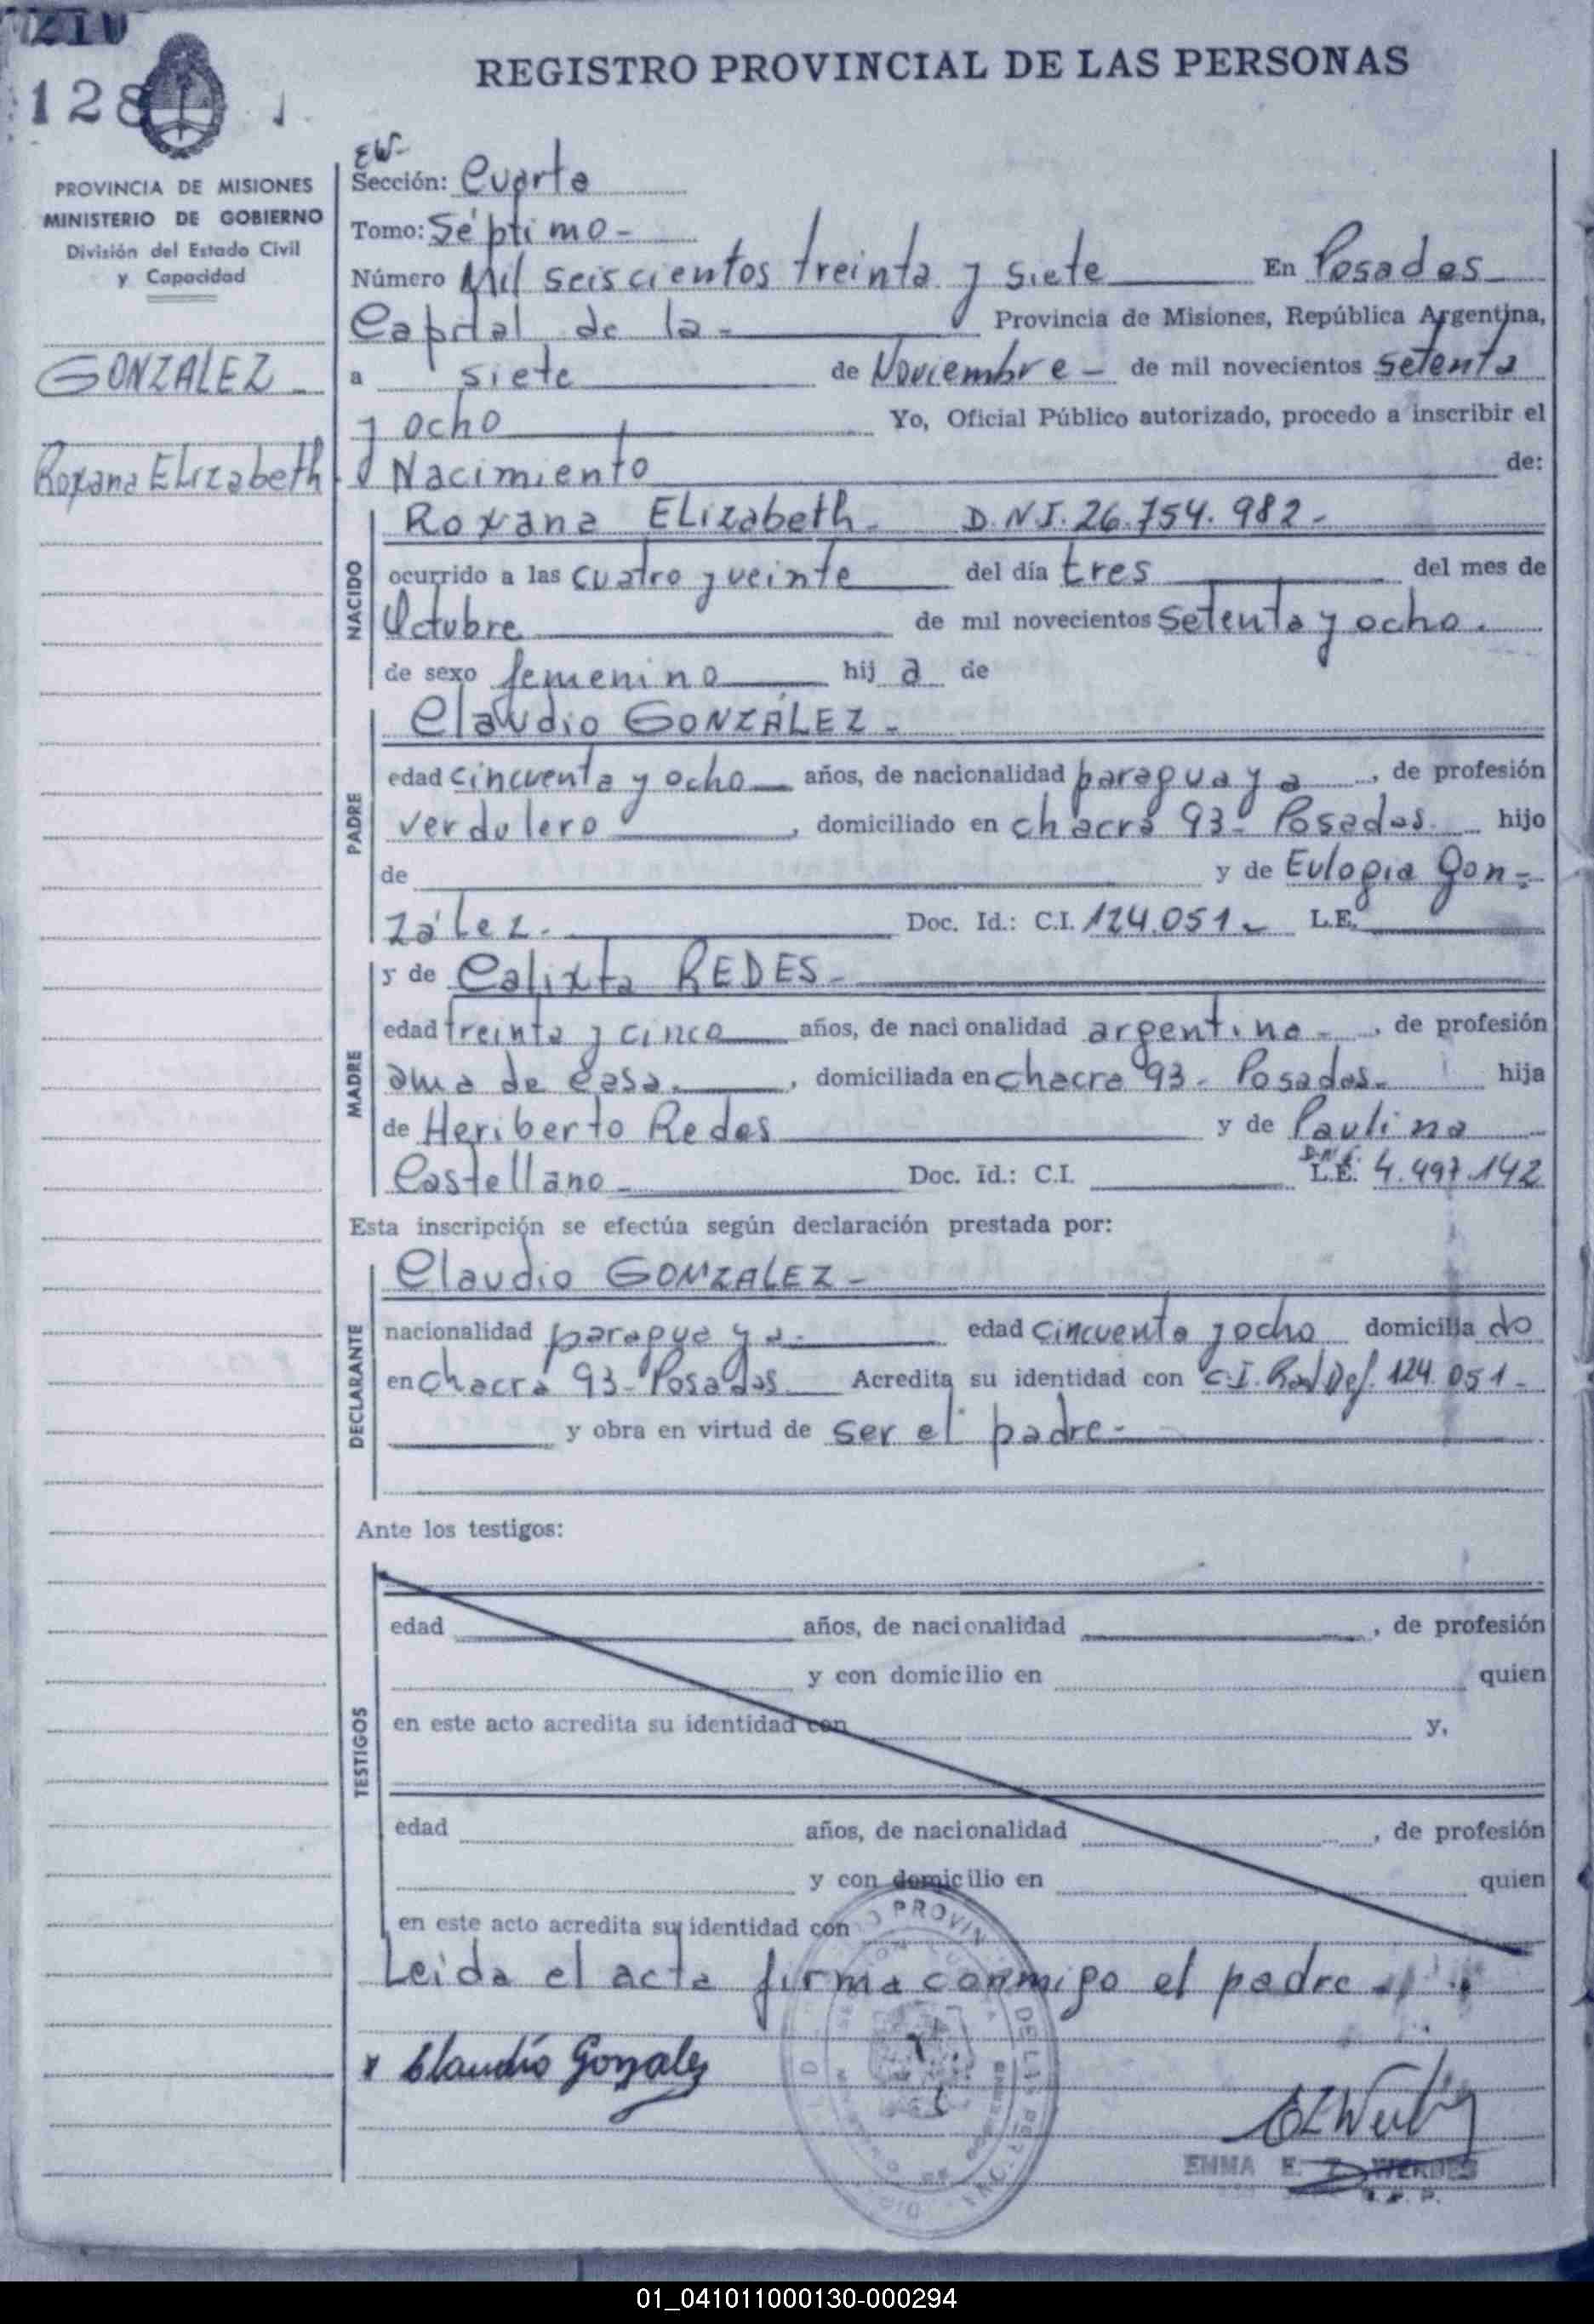 210
128
REGISTRO PROVINCIAL DE LAS PERSONAS
PROVINCIA DE MISIONES
MINISTERIO DE GOBIERNO
División del Estado Civil
y Capacidad
GONZALEZ
Roxana Elizabeth
EW-
Sección: Cuarta
Tomo: Séptimo-
Número Mil seiscientos treinta y siete En Posadas
Capital de la- Provincia de Misiones, República Argentina,
a siete de Noviembre- de mil novecientos setenta
y ocho Yo, Oficial Público autorizado, procedo a inscribir el
Nacimiento de:
NACIDO
Roxana Elizabeth- D.N.I. 26.754.982-
ocurrido a las cuatro y veinte del día tres del mes de
Octubre de mil novecientos setenta y ocho.
de sexo femenino hij a de
PADRE
Claudio GONZÁLEZ-
edad cincuenta y ocho años, de nacionalidad paraguaya, de profesión
verdulero, domiciliado en chacra 93- Posadas. hijo
de y de Eulogia Gon-
zález. Doc. Id.: C.I. 124.051- L.E.
MADRE
y de Calixta REDES-
edad treinta y cinco años, de nacionalidad argentina-, de profesión
ama de casa., domiciliada en chacra 93- Posadas- hija
de Heriberto Redes y de Paulina
Castellano- Doc. Id.: C.I. L.E. 4.497.142
Esta inscripción se efectúa según declaración prestada por:
DECLARANTE
Claudio GONZALEZ-
nacionalidad paraguaya- edad cincuenta y ocho domicilia do
en chacra 93- Posadas Acredita su identidad con C.I. 124.051-
y obra en virtud de ser el padre-
Ante los testigos:
TESTIGOS
edad años, de nacionalidad , de profesión
y con domicilio en quien
en este acto acredita su identidad con y,
edad años, de nacionalidad , de profesión
y con domicilio en quien
en este acto acredita su identidad con
Leida el acta firma conmigo el padre-
x Claudio Gonzalez
EMMA E. Z. WERDES
01_041011000130-000294